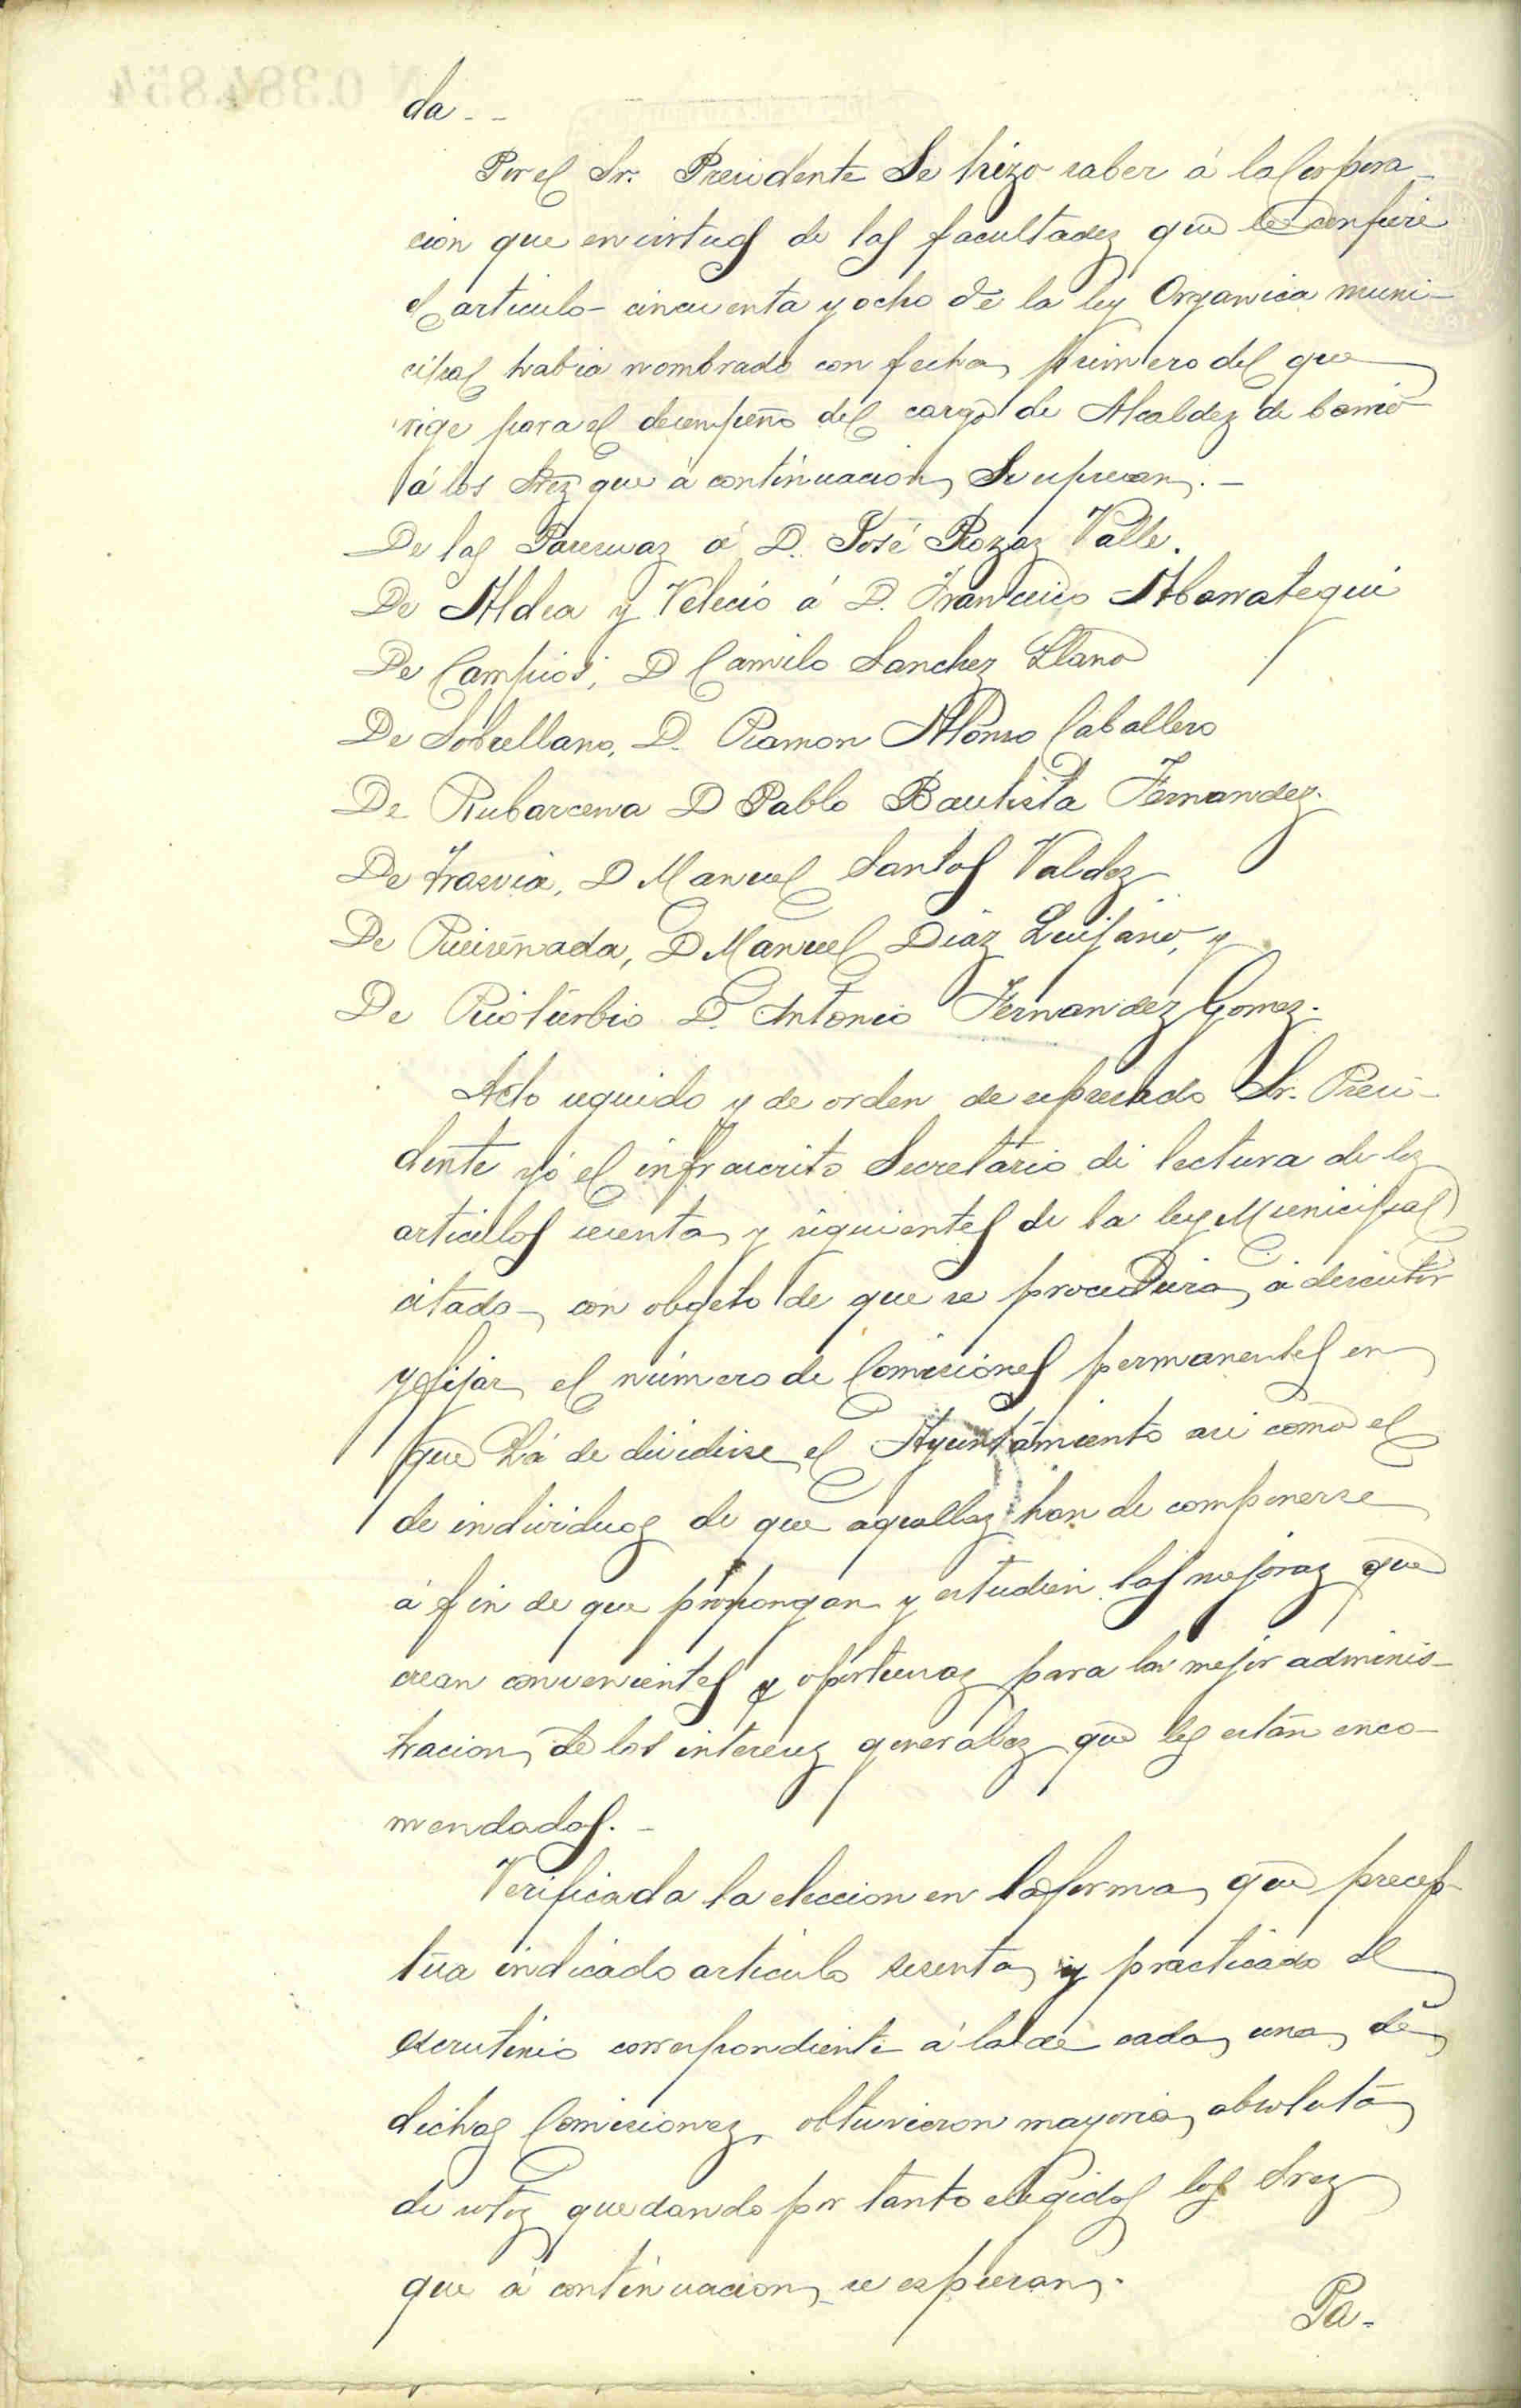 N 0.384.854
da - -
Por el Sr. Presidente Se hizo saber á la Corpora-
cion que en virtud de las facultades que le confiere
el articulo - cincuenta y ocho de la ley Organica muni-
cipal habia nombrado con fecha primero del que
rige para el desempeño del cargo de Alcaldes de barrio
á los Sres que á continuacion Se expresan. -
De las á D. José Rozas Valle.
De Aldea y Velecio á D. Francisco Abarrategui
De Campios, D Camilo Sanchez Llano
De Sobrellano, D. Ramon Alonso Caballero
De Rubarcena D Pablo Bautista Fernandez.
De Trasvia, D Manuel Santos Valdez
De Ruiseñada, D Manuel Diaz Quijano, y
De Rioturbio D. Antonio Fernandez Gomez.
Acto seguido y de orden de expresado Sr. Presi-
dente yó el infrascrito Secretario di lectura de los
articulos sesenta y siguientes de la ley Municipal
citada, con objeto de que se procediera á discutir
y fijar el número de Comisiones permanentes en
que há de dividirse el Ayuntamiento asi como el
de individuos de que aquellas han de componerse
á fin de que propongan y estudien las mejoras que
crean convenientes y oportunas para la mejor adminis-
tracion de los intereses generales que les están enco-
mendados. -
Verificada la eleccion en la forma que precep-
túa indicado articulo sesenta y practicado el
escrutinio correspondiente á la de cada una de
dichas Comisiones, obtuvieron mayoria absoluta
de votos quedando por tanto elegidos los Sres
que á continuacion se espresan.
Pa-